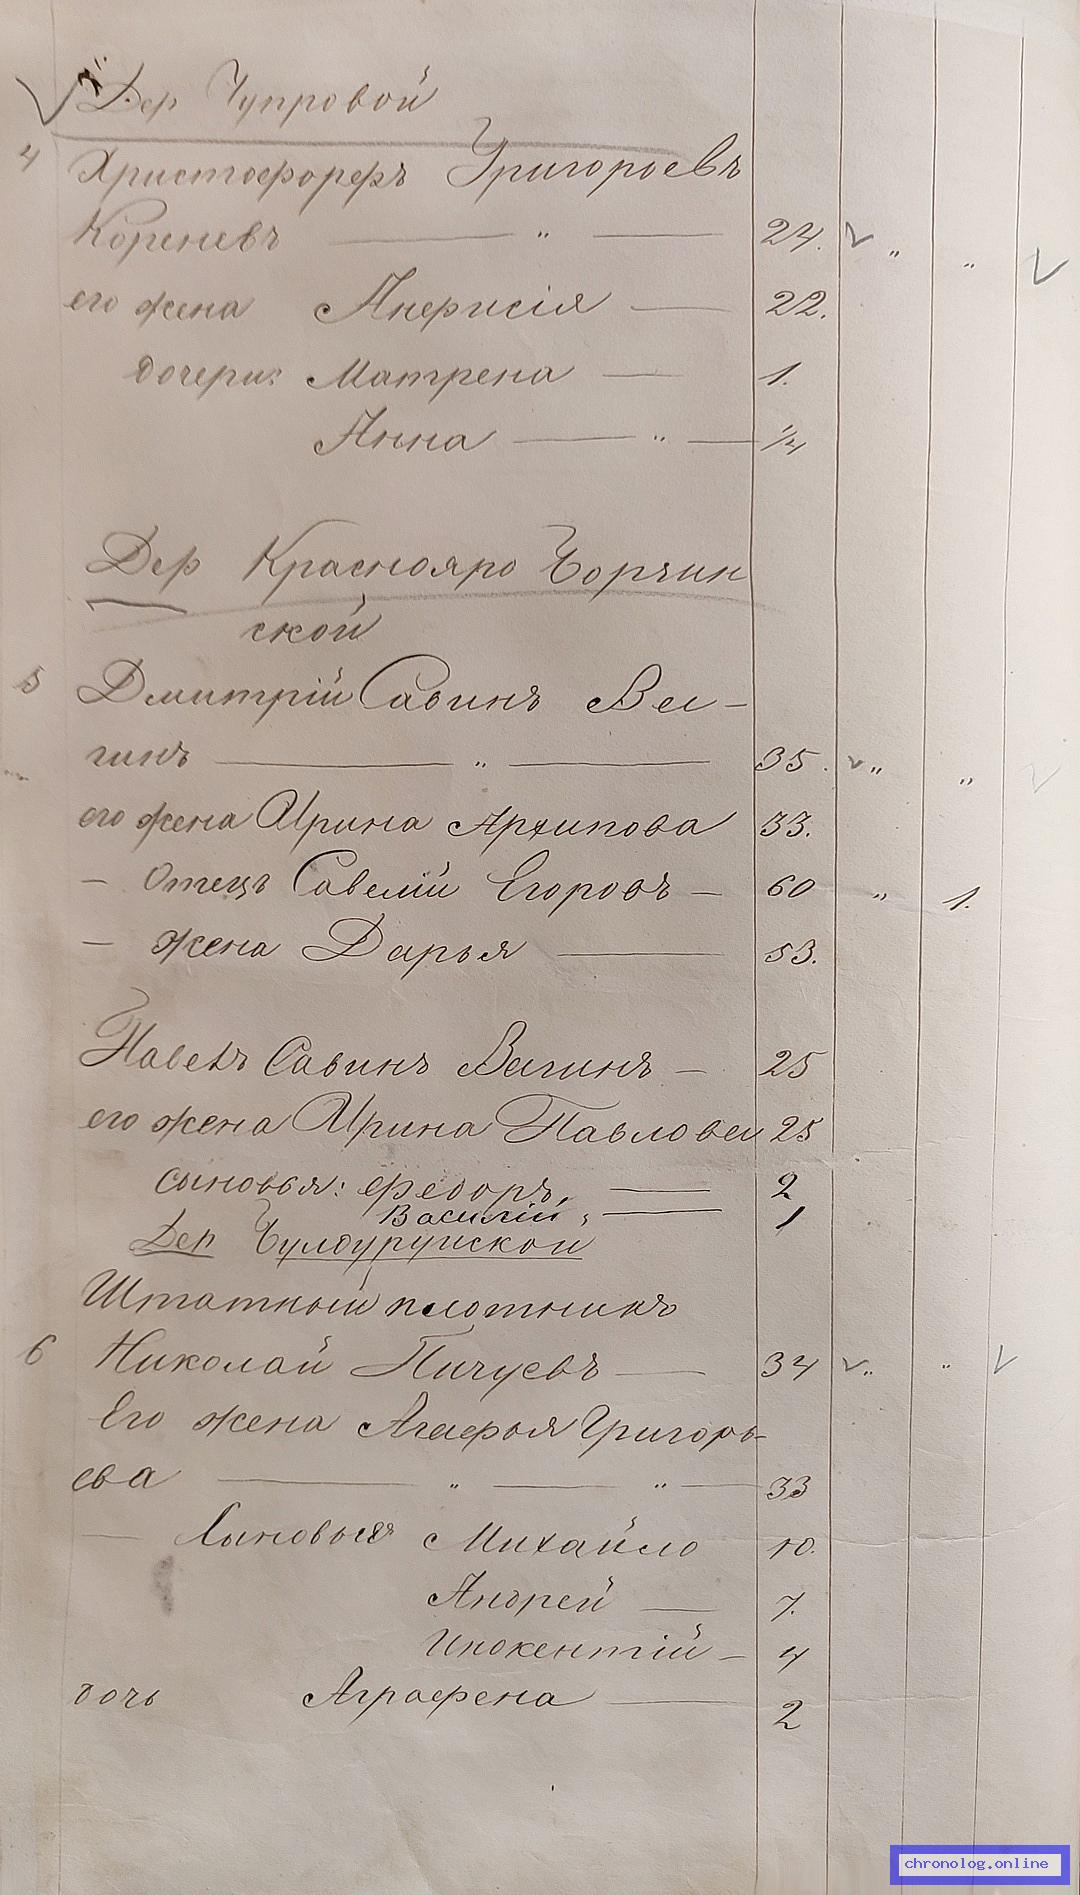 Дер Чупровой
4 Христофоръ Григорьевъ
Кореневъ — " — 24. "  "
его жена Анфисія — 22.
дочери: Матрена — 1.
Анна — " — 1/4
Дер Краснояро Борчин
ской
5 Дмитрій Савинъ Вег-
гинъ — " — 35. "  "
его жена Ирина Архипова 33.
- Отецъ Савелій Егоровъ — 60 " 1.
- жена Дарья — 53.
Павелъ Савинъ Вегинъ — 25
его жена Ирина Павлова 25
сыновья: Федоръ, — 2
Василій, — 1
Дер
Штатный плотникъ
6 Николай Пичуевъ — 34 "  "
Его жена Агафья Григорь-
ева — " — " — 33
— Сыновья Михайло 10.
Андрей — 7.
Инокентій — 4
дочь Аграфена — 2
chronolog.online